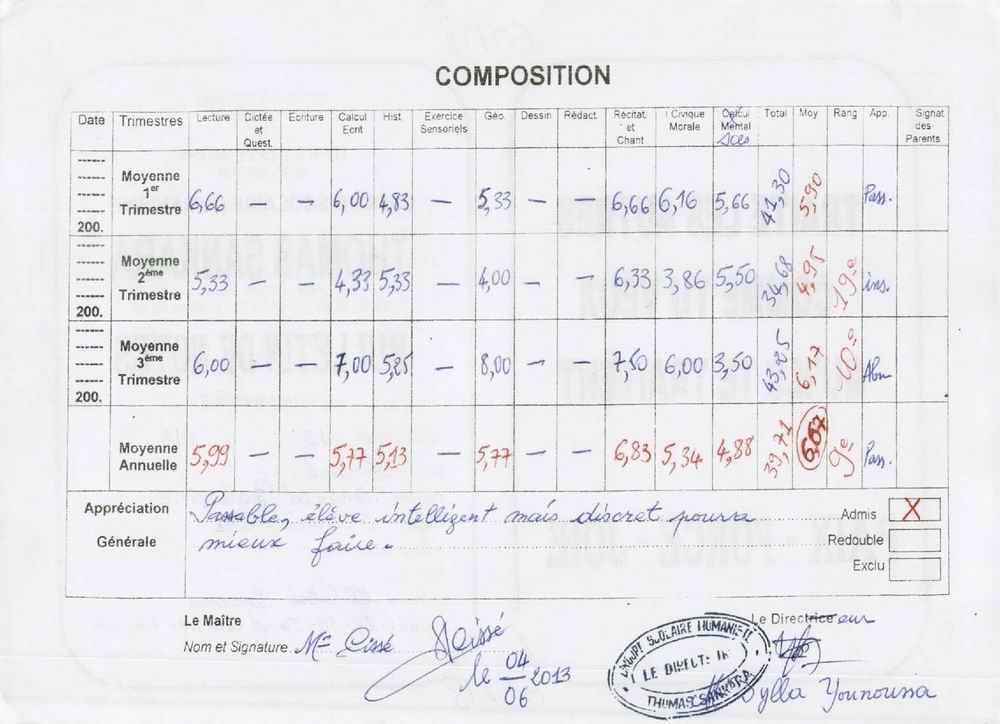 COMPOSITION
Date Trimestres Lecture Dictée et Quest. Ecriture Calcul Ecrit Hist. Exercice Sensoriels Géo. Dessin Rédact. Récitat. et Chant I Civique Morale Calcul Mental Sces Total Moy Rang App. Signat des Parents
Moyenne 1er Trimestre 200. 6,66 — — 6,00 4,83 — 5,33 — — 6,66 6,16 5,66 41,30 5,90 Pass.
Moyenne 2ème Trimestre 200. 5,33 — — 4,33 5,33 — 4,00 — — 6,33 3,86 5,50 34,68 4,95 19e ins.
Moyenne 3ème Trimestre 200. 6,00 — — 7,00 5,25 — 8,00 — — 7,50 6,00 3,50 43,25 6,17 10e Abn
Moyenne Annuelle 5,99 — — 5,77 5,13 — 5,77 — — 6,83 5,34 4,88 39,71 5,67 9e Pass.
Appréciation Générale
Passable, élève intelligent mais discret pourra
mieux faire.
Admis X
Redouble
Exclu
Le Maître
Nom et Signature. Mr Cissé Cissé
le 04/06 2013
Le Directeur
GROUPE SCOLAIRE HUMANITE
LE DIRECTEUR
THOMAS SANKARA
Sylla Younoussa